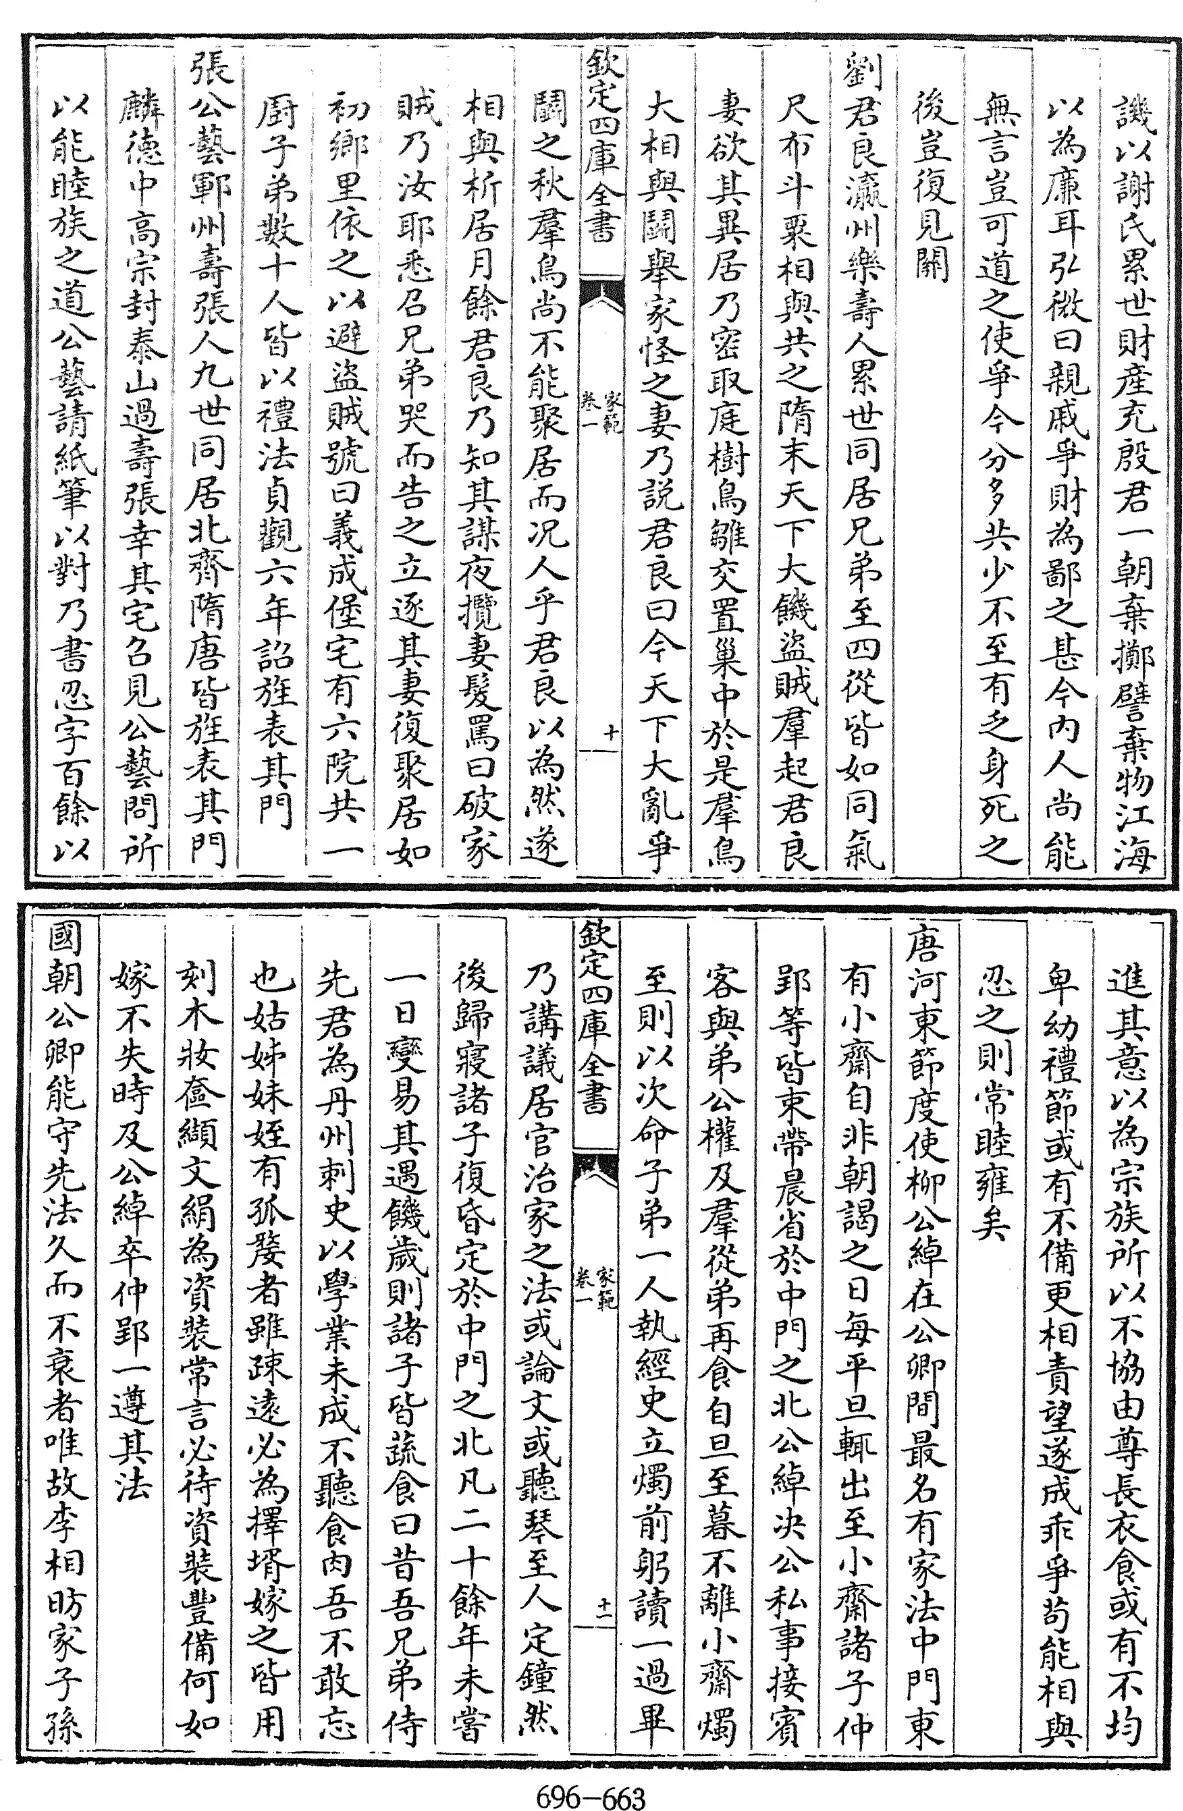 譏以謝氏累世財産充殷君一朝棄擲譬棄物江海
以為廉耳弘微曰親戚爭財為鄙之甚今内人尚能
無言豈可道之使爭今分多共少不至有乏身死之
後豈復見關
劉君良瀛州樂壽人累世同居兄弟至四從皆如同氣
尺布斗粟相與共之隋末天下大饑盜賊羣起君良
妻欲其異居乃密取庭樹鳥雛交置巢中於是羣鳥
大相與鬭舉家怪之妻乃說君良曰今天下大亂爭
欽定四庫全書
家範
卷一
十
鬭之秋羣鳥尚不能聚居而况人乎君良以為然遂
相與析居月餘君良乃知其謀夜攬妻髪罵曰破家
賊乃汝耶悉召兄弟哭而告之立逐其妻復聚居如
初鄉里依之以避盜賊號曰義成堡宅有六院共一
廚子弟數十人皆以禮法貞觀六年詔旌表其門
張公藝鄆州壽張人九世同居北齊隋唐皆旌表其門
麟德中高宗封泰山過壽張幸其宅召見公藝問所
以能睦族之道公藝請紙筆以對乃書忍字百餘以
進其意以為宗族所以不協由尊長衣食或有不均
卑幼禮節或有不備更相責望遂成乖爭苟能相與
忍之則常睦雍矣
唐河東節度使柳公綽在公卿間最名有家法中門東
有小齋自非朝謁之日每平旦輒出至小齋諸子仲
郢等皆束帶晨省於中門之北公綽决公私事接賓
客與弟公權及羣從弟再食自旦至暮不離小齋燭
至則以次命子弟一人執經史立燭前躬讀一過畢
欽定四庫全書
家範
卷一
十一
乃講議居官治家之法或論文或聽琴至人定鐘然
後歸寢諸子復昏定於中門之北凡二十餘年未嘗
一日變易其遇饑歲則諸子皆蔬食曰昔吾兄弟侍
先君為丹州刺史以學業未成不聽食肉吾不敢忘
也姑姊妹姪有孤嫠者雖疎逺必為擇壻嫁之皆用
刻木妝奩纈文絹為資裝常言必待資裝豐備何如
嫁不失時及公綽卒仲郢一遵其法
國朝公卿能守先法久而不衰者唯故李相昉家子孫
696-663